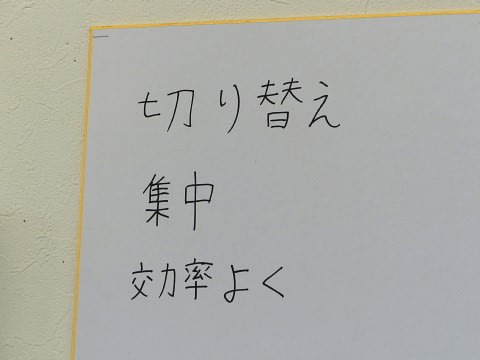 切り替え
集中
効率よく